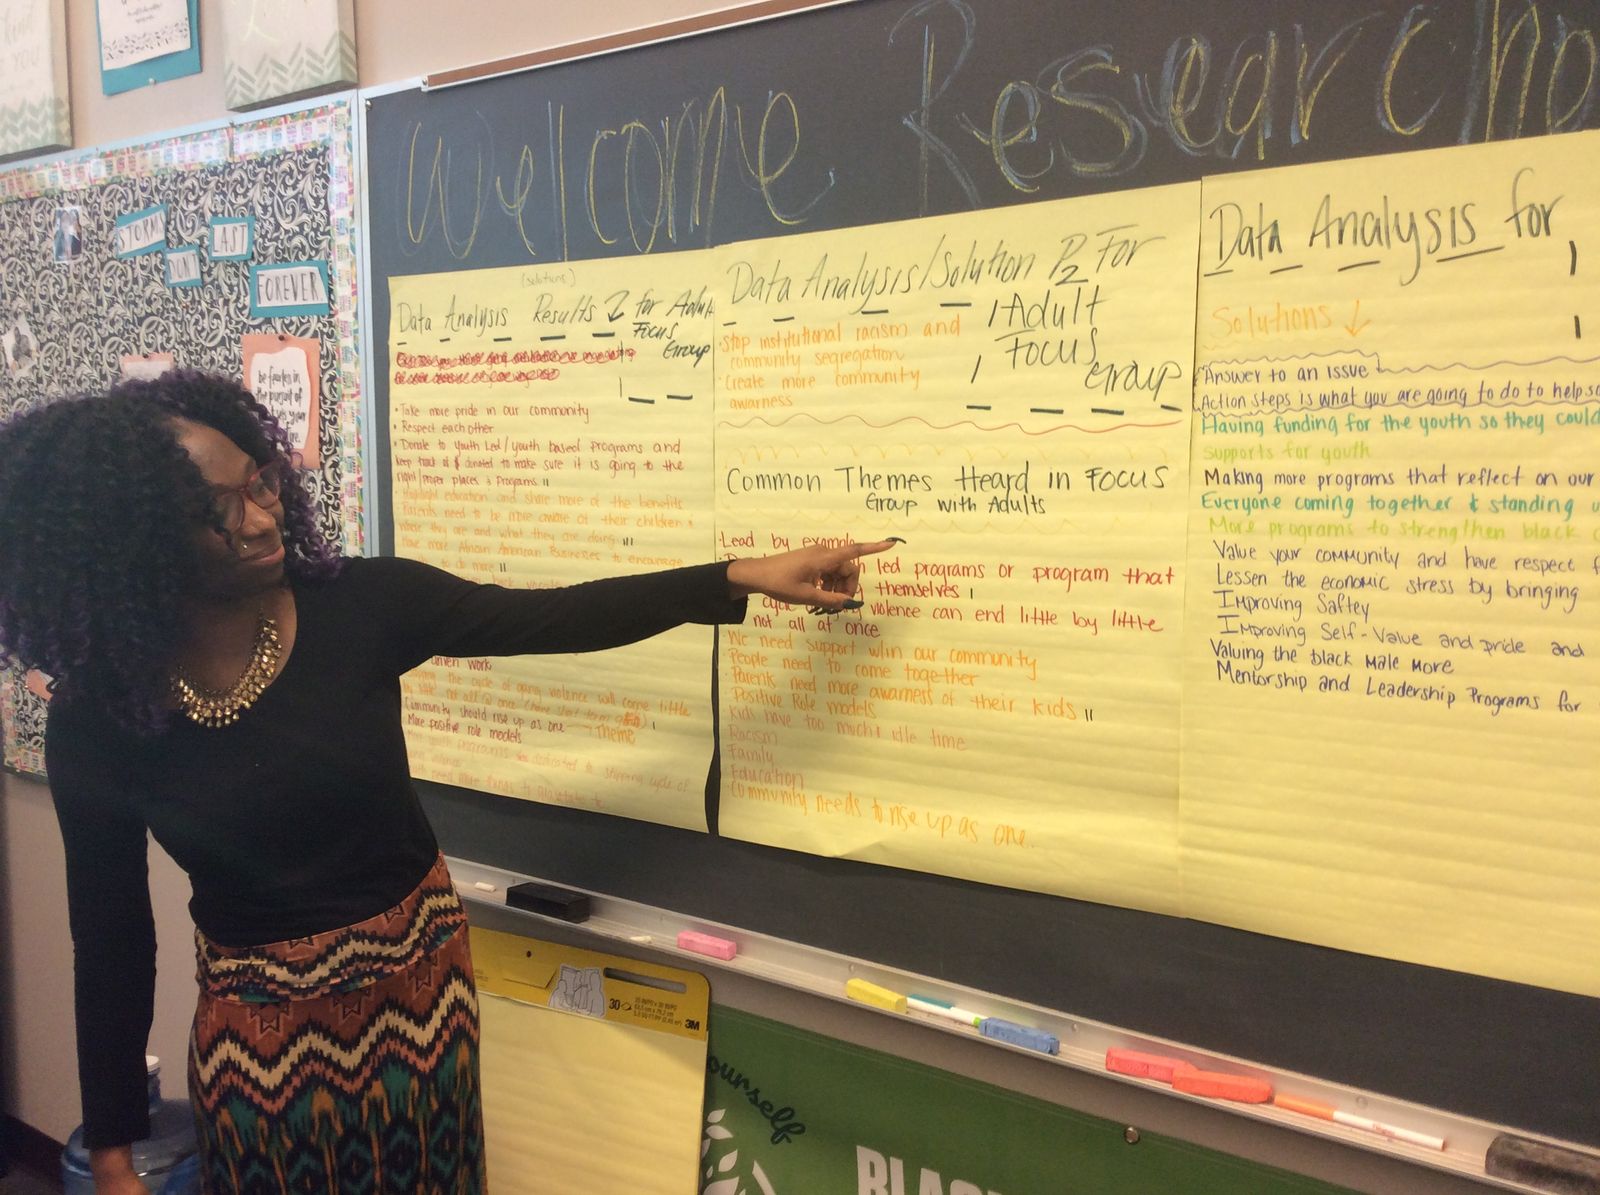 Welcome Research
STORMS
DON'T
LAST
FOREVER
be fearless in
the pursuit of
(solutions)
Data Analysis Results for Adult
Focus
Group
• Take more pride in our community
• Respect each other
• Donate to Youth Led/youth based programs and
keep track of $ donated to make sure it is going to the
right/proper places & programs II
• Highlight education and share more of the benefits
• Parents need to be more aware of their children &
where they are and what they are doing III
Have more African American Businesses to encourage
to do more II
driven work
the cycle of violence will come little
by little not all @ once
Community should rise up as one Theme
More positive role models
programs dedicated to stopping cycle of
Data Analysis/Solution P2 For
Adult
Focus
Group
• Stop institutional racism and
community segregation
• Create more community
awarness
Common Themes Heard in Focus
Group with Adults
• Lead by example
led programs or program that
themselves I
cycle violence can end little by little
not all at once
• We need support w/in our community
• People need to come together
• Parents need more awarness of their kids II
Positive Role models
Kids have too much idle time
Racism
Family
• Education
• Community needs to rise up as one.
Data Analysis for
Solutions
Answer to an issue
Action steps is what you are going to do to help
Having funding for the youth so they could
supports for youth
Making more programs that reflect on our
Everyone coming together & standing
More programs to strengthen black
Value your community and have respect
Lessen the economic stress by bringing
Improving Saftey
Improving Self-Value and pride and
Valuing the black male more
Mentorship and Leadership Programs for
30
3M
ourself
BLAC